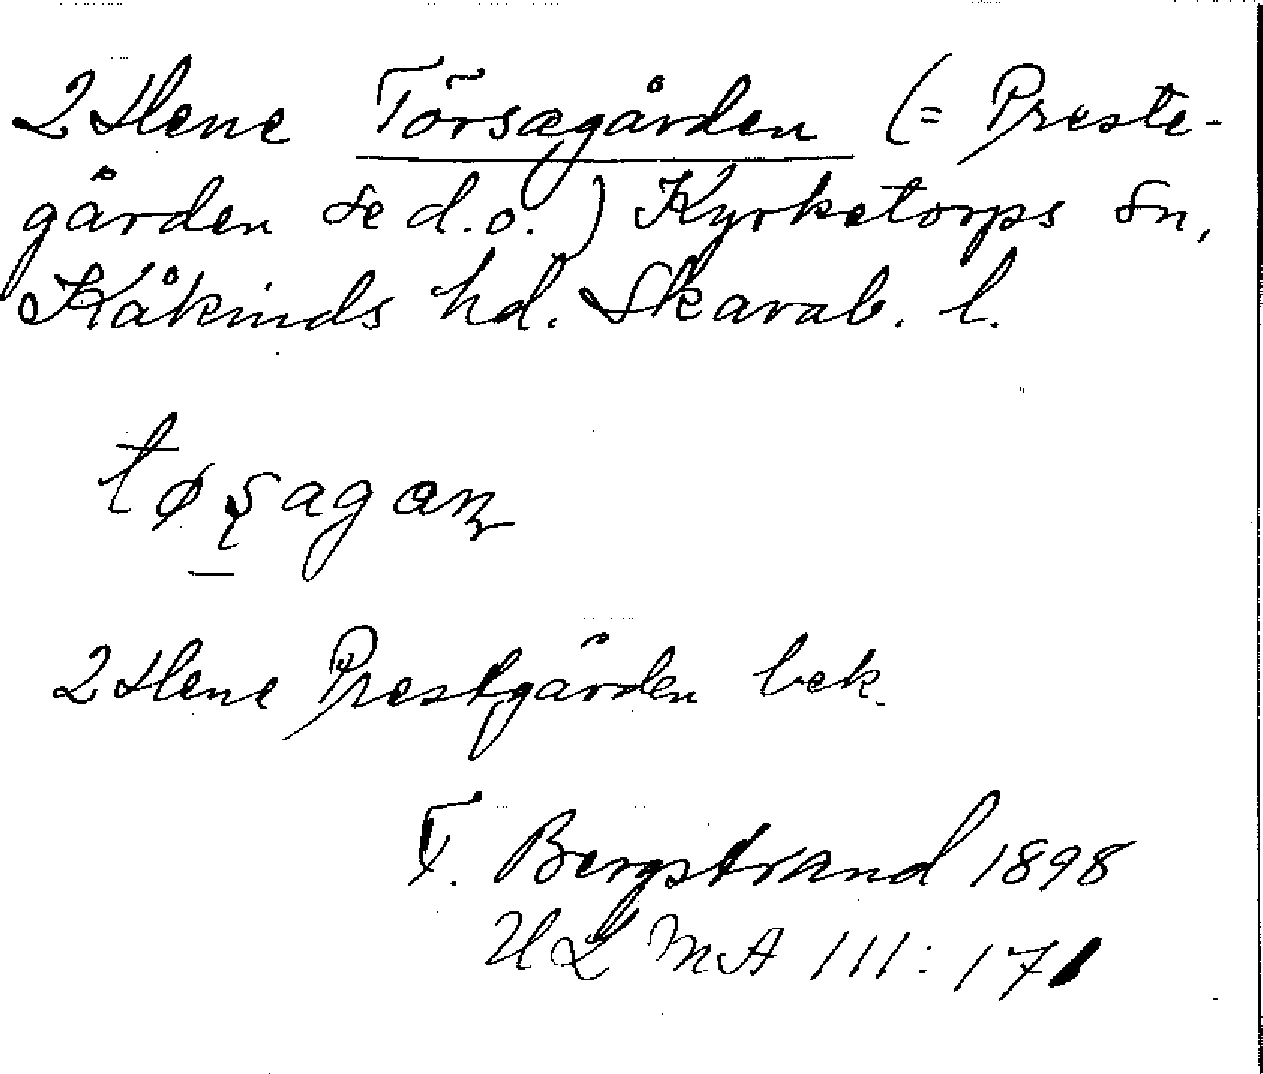 2 Hene Törsagården (= Preste-
gården se d.o.) Kyrketorps sn,
Kåkinds hd. Skarab. l.
2 Hene Prestgården bek.
F. Bergstrand 1898
ULMA 111: 171